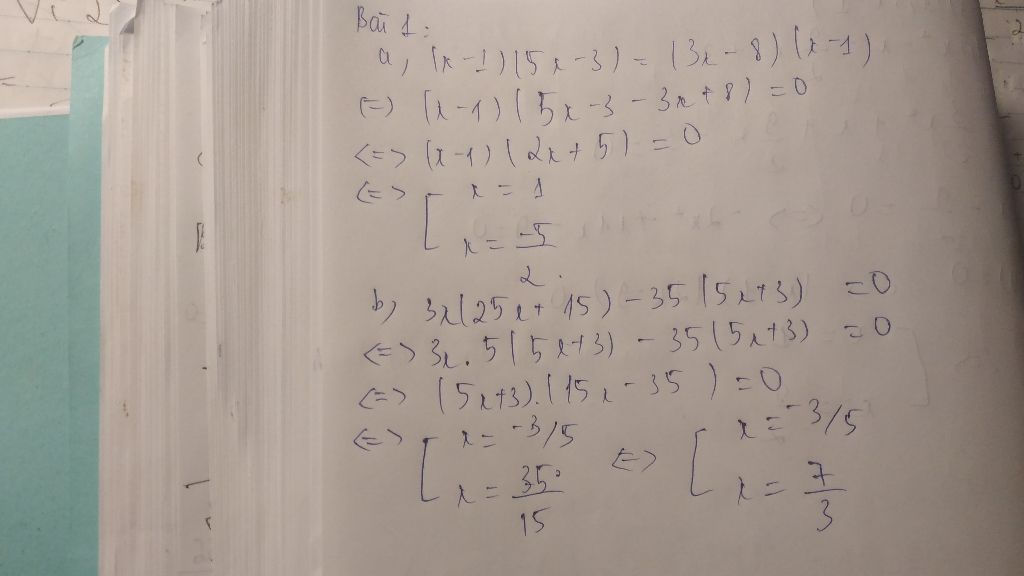 Bài 1:
a, (x-1)(5x-3) = (3x-8)(x-1)
(=) (x-1)(5x-3-3x+8) = 0
<=> (x-1)(2x+5) = 0
<=> [ x = 1
x = -5/2
b, 3x(25x+15) - 35(5x+3) = 0
<=> 3x.5(5x+3) - 35(5x+3) = 0
<=> (5x+3).(15x-35) = 0
<=> [ x = -3/5 <=> [ x = -3/5
x = 35/15 x = 7/3